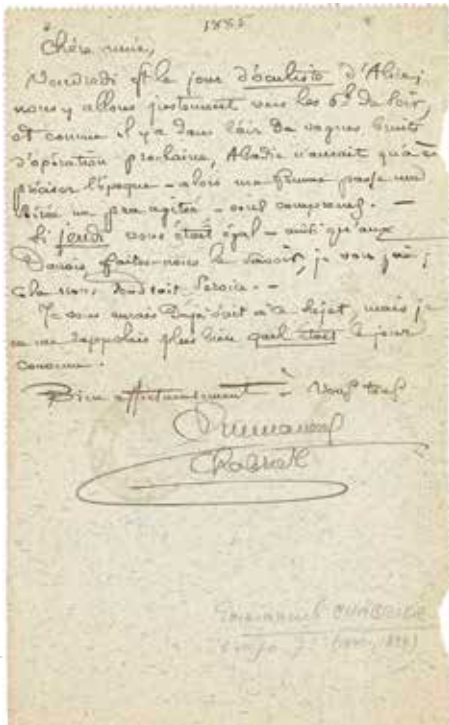 1885
Chère amie,
Vendredi est le jour d'oculiste d'Alice;
nous y allons justement vers les 6h du soir,
et comme il y a dans l'air de vagues bruits
d'opération prochaine, Abadie n'aurait qu'à en
préciser l'époque – alors ma femme passe une
soirée un peu agitée – vous comprenez. –
Si jeudi vous était égal – ainsi qu'aux
Danois, faites-nous le savoir, je vous prie;
cela nous rendrait service. –
Je vous aurais déjà écrit à ce sujet, mais je
ne me rappelais plus bien quel était le jour
convenu.
Bien affectueusement à vous tous
Emmanuel
Chabrier
Emmanuel CHABRIER